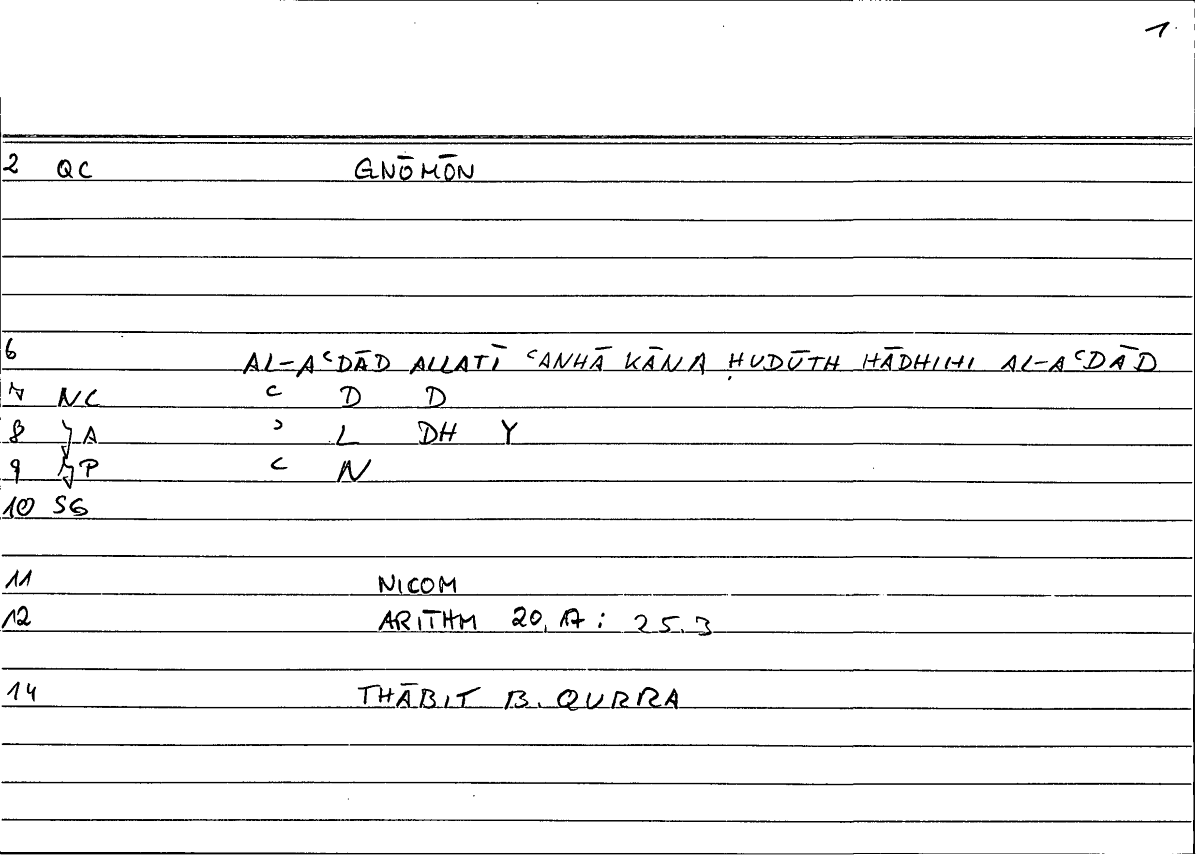 1
2 QC GNŌMŌN
6 AL-AʿDĀD ALLATĪ ʿANHĀ KĀNA ḤUDŪTH HĀDHIHI AL-AʿDĀD
7 NC ʿ D D
8 A ʾ L DH Y
9 P ʿ N
10 SG
11 NICOM
12 ARITHM 20,17 : 25.3
14 THĀBIT B. QURRA